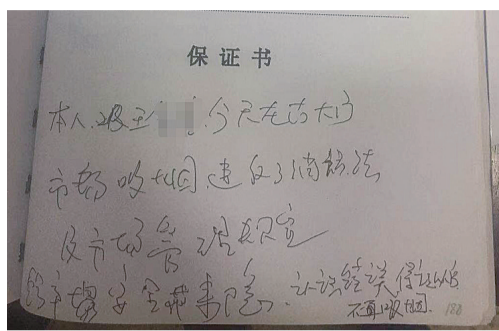 保证书
本人,今天在古大门
市场吸烟,违反了消防法
及市场管理规定
给市场安全带来隐,认识错误保证以后
不再吸烟。